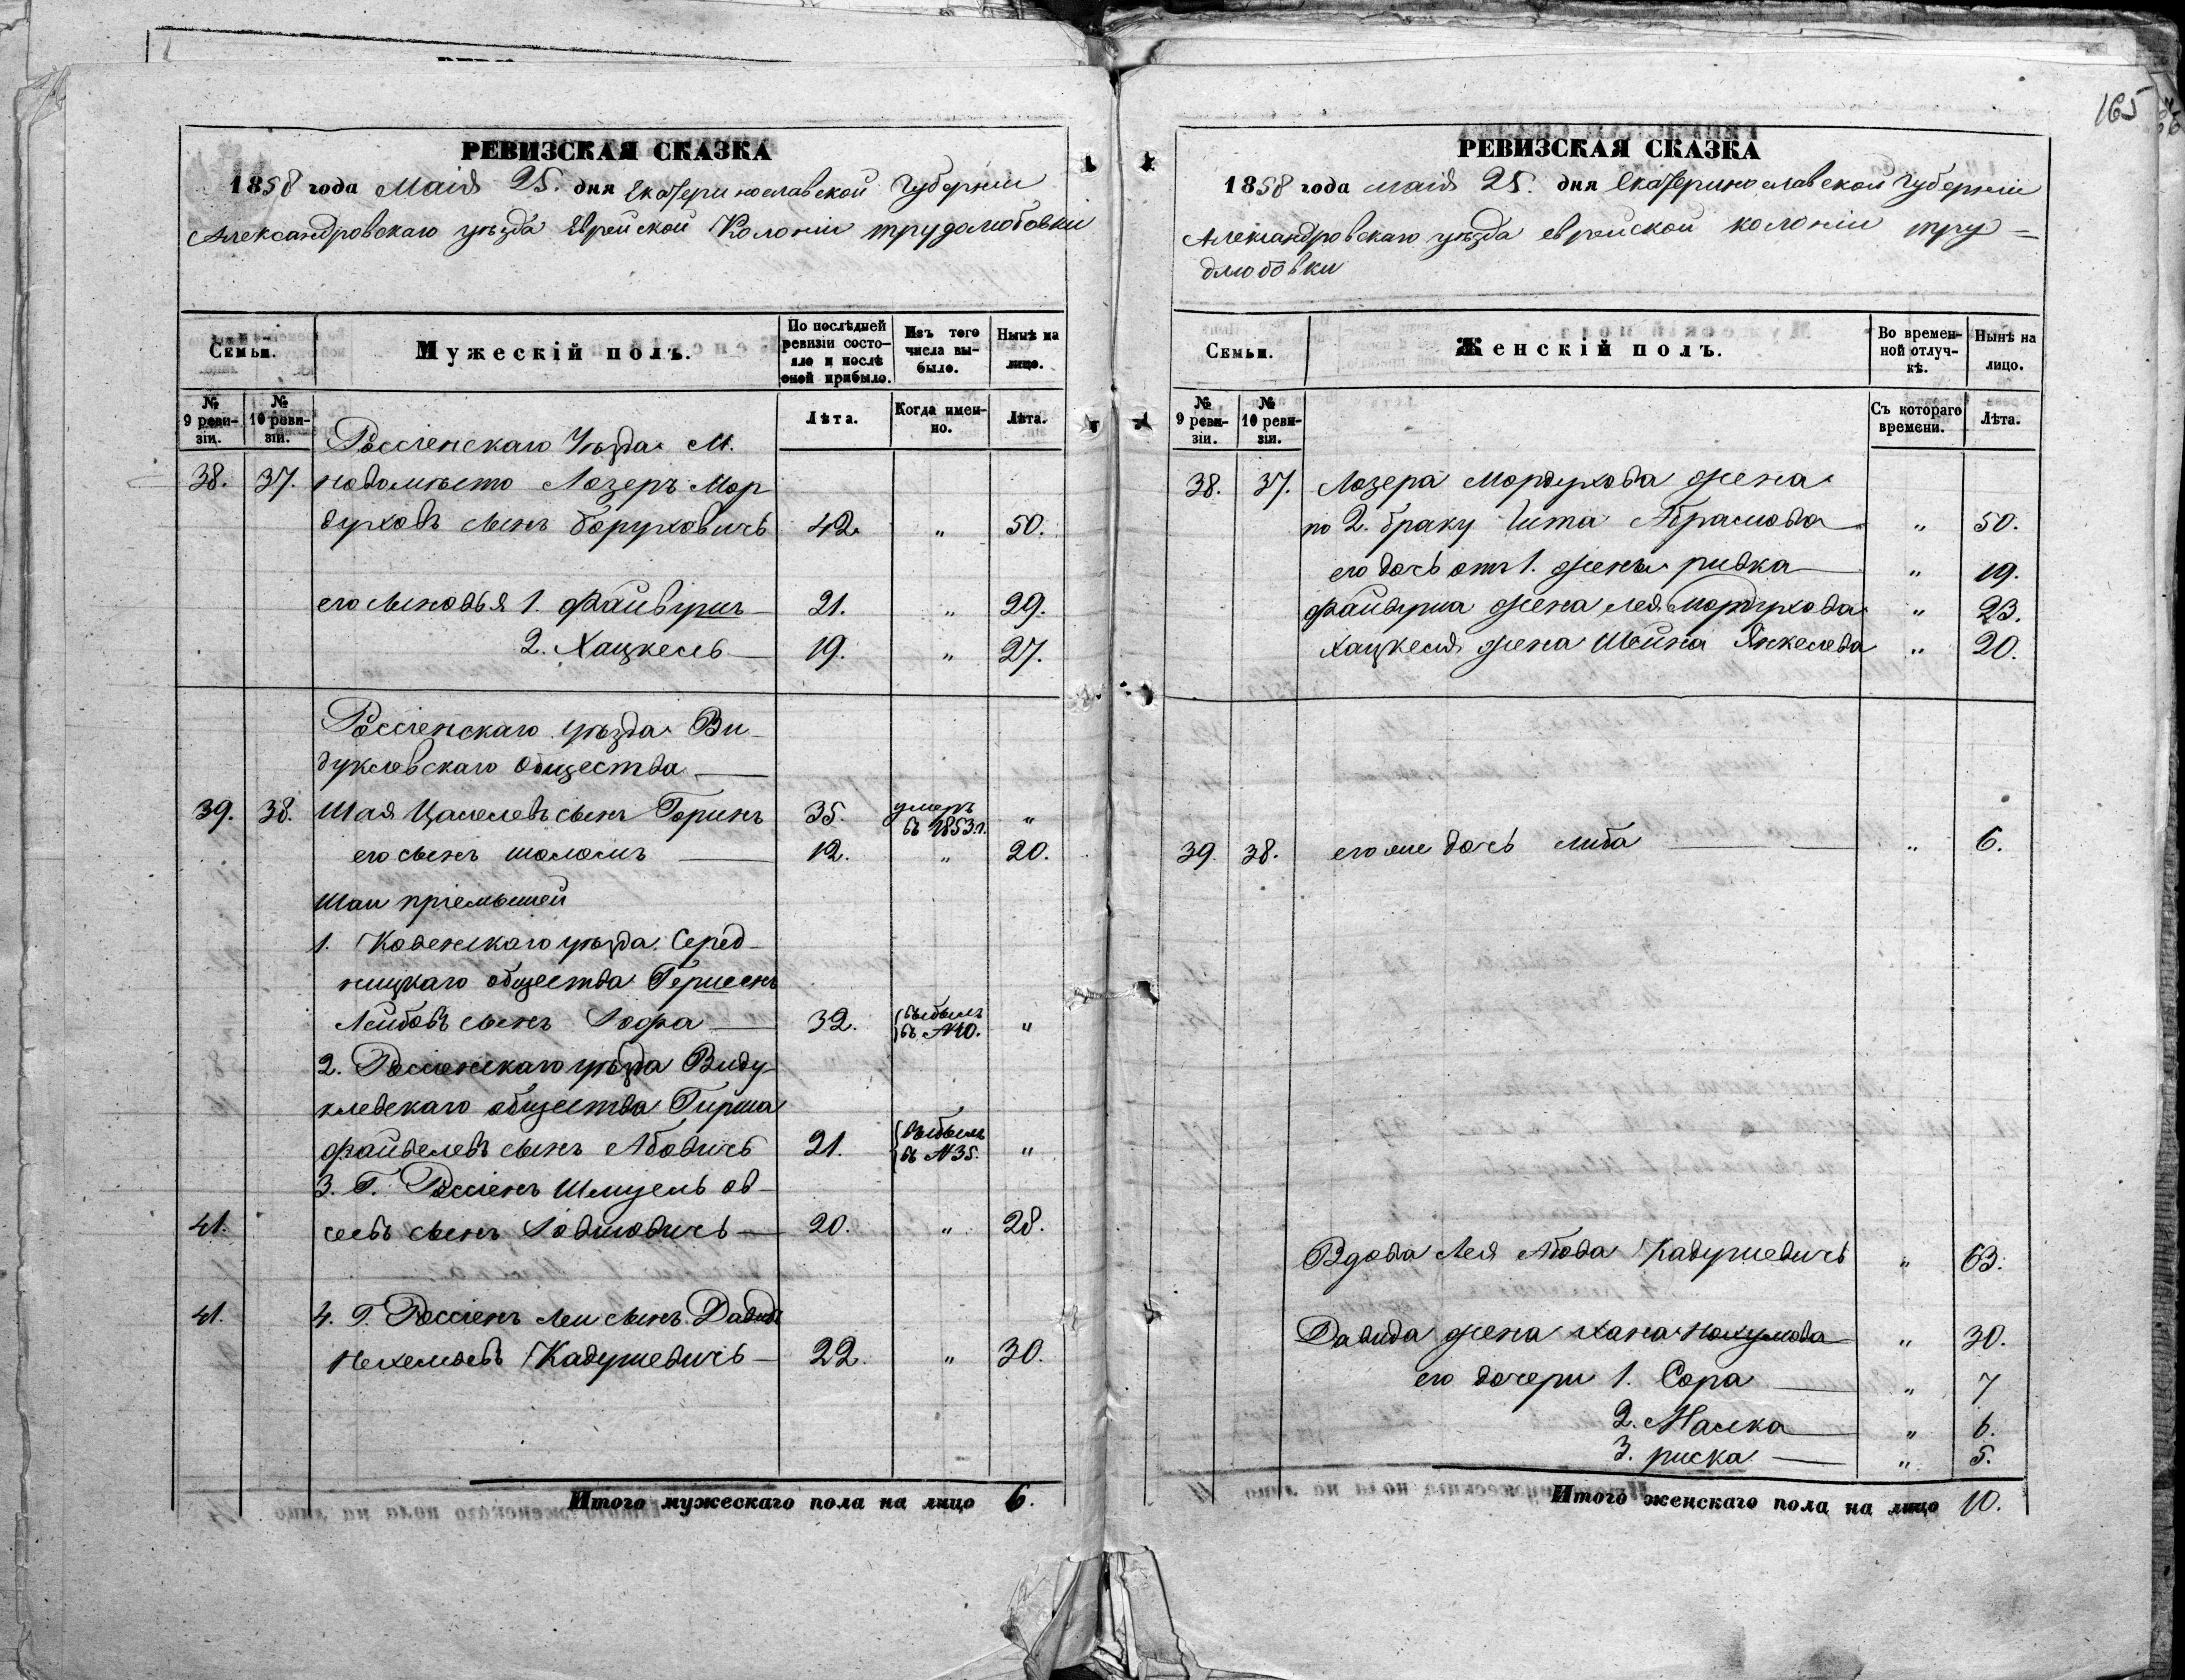 165
РЕВИЗСКАЯ СКАЗКА
1858 года Маія 25. дня Екатеринославской Губерніи
Александровскаго уѣзда Еврейской Колоніи трудолюбовки
Семьи.
Мужескій полъ.
По послѣдней ревизіи состояло и послѣ оной прибыло.
Изъ того числа выбыло.
Нынѣ на лицо.
№ 9 ревизіи.
№ 10 ревизіи.
Лѣта.
Когда именно.
Лѣта.
Россіенскаго Уѣзда М.
38. 37. новомѣсто Лозеръ Мор
духовъ сынъ Боруховичъ 42. " 50.
его сыновья 1. Файвушъ 21. " 29.
2. Хацкель 19. " 27.
Россіенскаго уѣзда Ви-
дуклевскаго общества
39. 38. Шая Цалелевъ сынъ Горинъ 35. умеръ въ 1853 г. "
его сынъ шоломъ 12. " 20.
Шаи пріемышей
1. Ковенскаго уѣзда Серед-
ницкаго общества Гершенъ
Лейбовъ сынъ 32. выбылъ въ №40. "
2. Россіенскаго уѣзда Виду-
клевскаго общества Гирша
файвелевъ сынъ Абовичъ 21. выбылъ въ №35. "
3. Г. Россіенъ Шмуель ов-
41. сеевъ сынъ 20. " 28.
41. 4. Г. Россіенъ Леи сынъ Давидъ
Кадушевичъ 22. " 30.
Итого мужескаго пола на лицо 6.
РЕВИЗСКАЯ СКАЗКА
1858 года маія 25. дня Екатеринославской губерніи
Александровскаго уѣзда еврейской колоніи тру=
длюбовки
Семьи.
Женскій полъ.
Во временной отлучкѣ.
Нынѣ на лицо.
№ 9 ревизіи.
№ 10 ревизіи.
Съ котораго времени.
Лѣта.
38. 37. Лозера Мордухова жена
по 2. браку Абрамова " 50.
его дочь отъ 1. жены ривка " 19.
файвуша жена лея Мордухова " 23.
Хацкеля жена Шейна Янкелева " 20.
39. 38. его же дочь либа " 6.
Вдова Лея Абова Кадушевичъ " 63.
Давида жена хана Нохумова " 30.
его дочери 1. Сора " 7
2. Малка " 6.
3. риска " 5.
Итого женскаго пола на лицо 10.